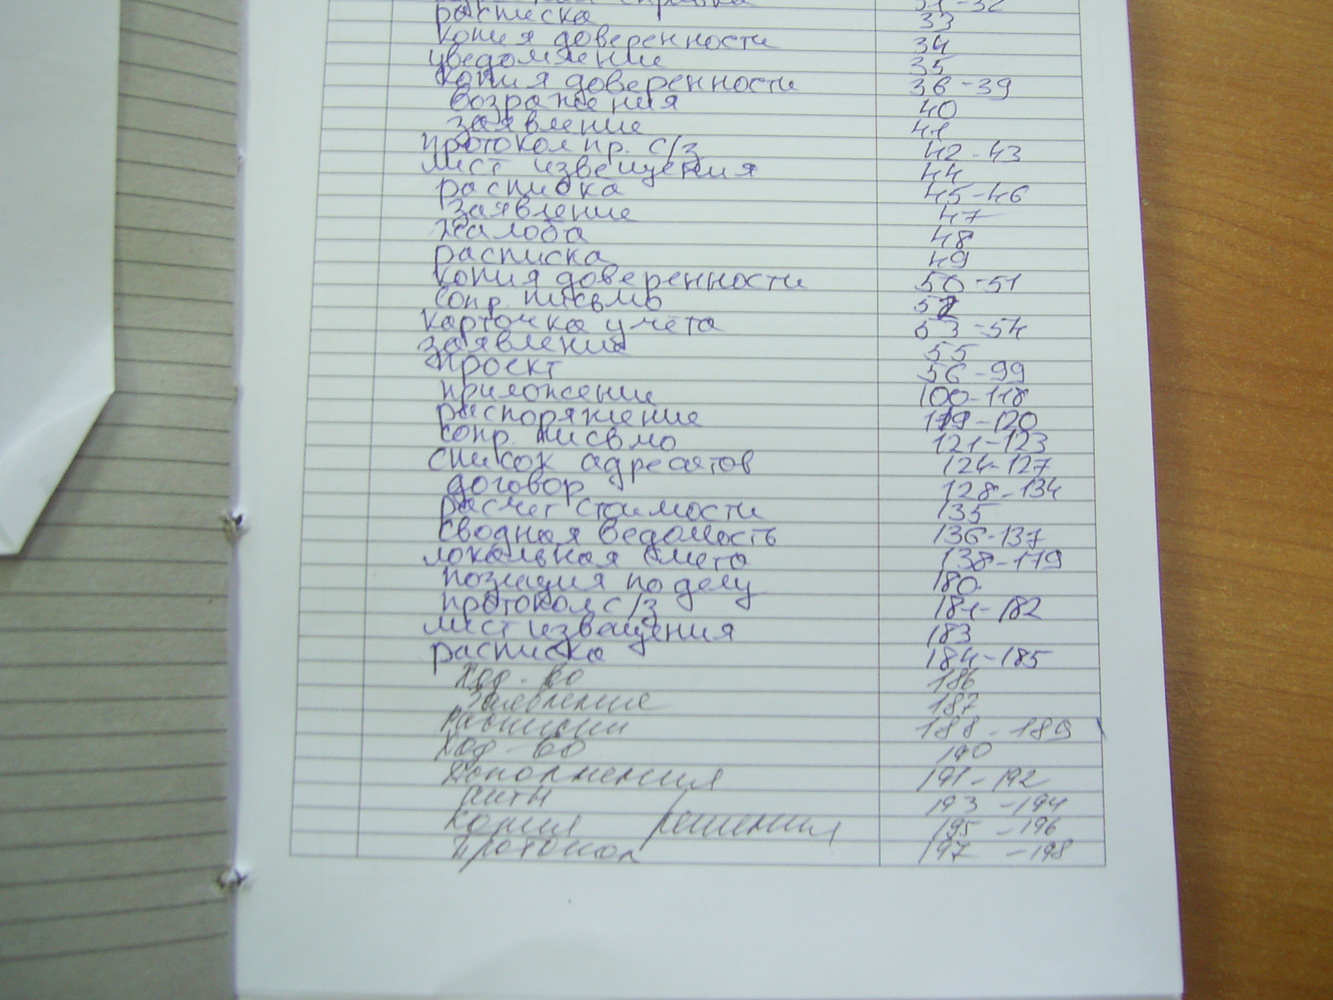 справка 31-32
расписка 33
копия доверенности 34
уведомление 35
копия доверенности 36-39
возражения 40
заявление 41
протокол пр. с/з 42-43
лист извещения 44
расписка 45-46
заявление 47
жалоба 48
расписка 49
копия доверенности 50-51
сопр. письмо 52
карточка учета 53-54
заявление 55
проект 56-99
приложение 100-118
распоряжение 119-120
сопр. письмо 121-123
список адресатов 124-127
договор 128-134
расчет стоимости 135
сводная ведомость 136-137
локальная смета 138-179
позиция по делу 180
протокол с/з 181-182
лист извещения 183
расписка 184-185
Ход-во 186
Заявление 187
Расписки 188-189
Ход-во 190
Дополнения 191-192
193-194
Копия решения 195-196
Протокол 197-198